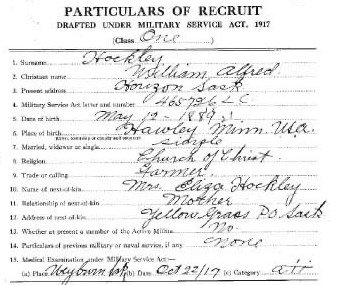 PARTICULARS OF RECRUIT
DRAFTED UNDER MILITARY SERVICE ACT, 1917
(Class One )
1. Surname Hockley
2. Christian name William Alfred
3. Present address Horizon Sask
4. Military Service Act letter and number 465726 L C
5. Date of birth May 12 - 1889
6. Place of birth Hawley Minn. USA.
(town, township or county and country)
7. Married, widower or single single
8. Religion Church of Christ
9. Trade or calling Farmer
10. Name of next-of-kin Mrs. Eliza Hockley
11. Relationship of next-of-kin Mother
12. Address of next-of-kin Yellow Grass P.O. Sask
13. Whether at present a member of the Active Militia No
14. Particulars of previous military or naval service, if any None
15. Medical Examination under Military Service Act:—
(a) Place Weyburn (b) Date Oct 22/17 (c) Category